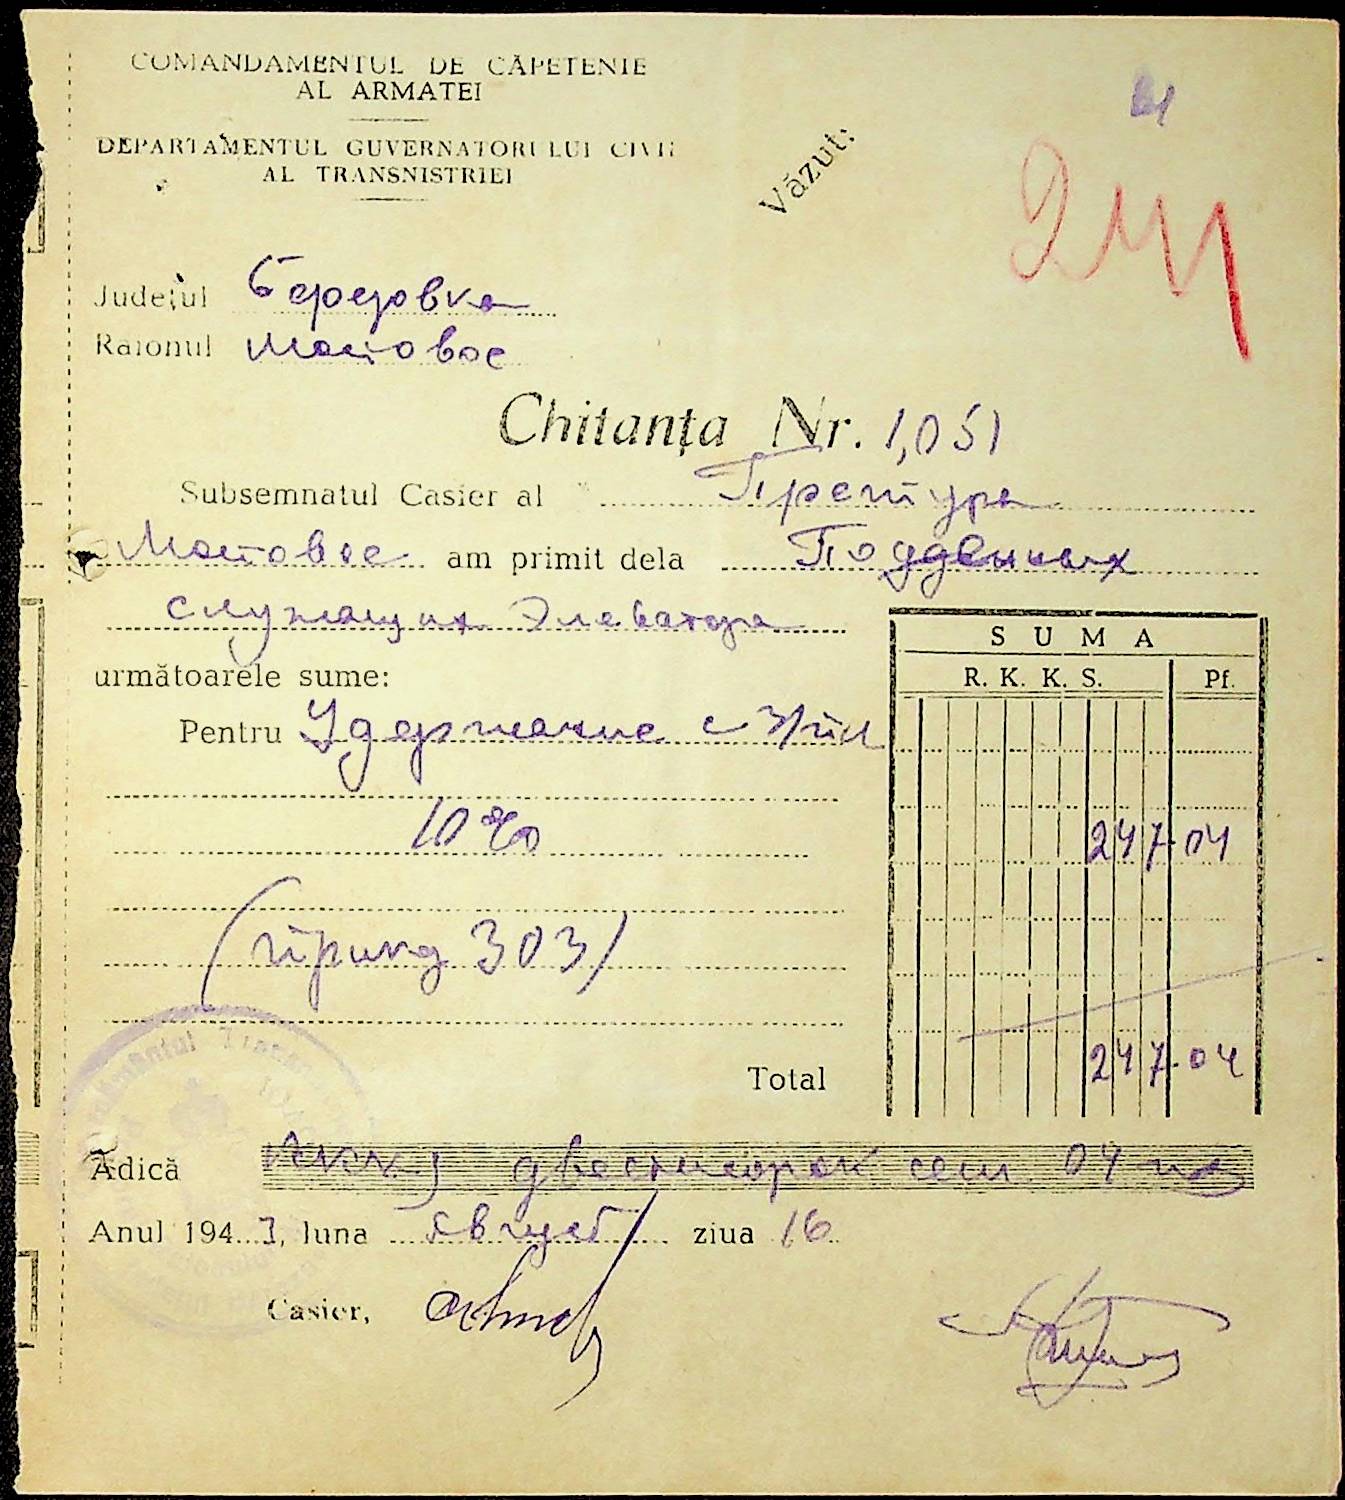 COMANDAMENTUL DE CĂPETENIE
AL ARMATEI
DEPARTAMENTUL GUVERNATORULUI CIVIL
AL TRANSNISTRIEI
Văzut:
244
Județul Березовка
Raionul Мостовое
Chitanța Nr. 1,051
Subsemnatul Casier al Претура
Мостовое am primit dela Подденных
служащих Элеватора
următoarele sume:
Pentru Удержание с з/пл
10%
303/
SUMA
R. K. K. S. Pf.
247-04
Total 247-04
Adică двестисорок сем 04 пф
Anul 1943, luna август ziua 16
Casier,